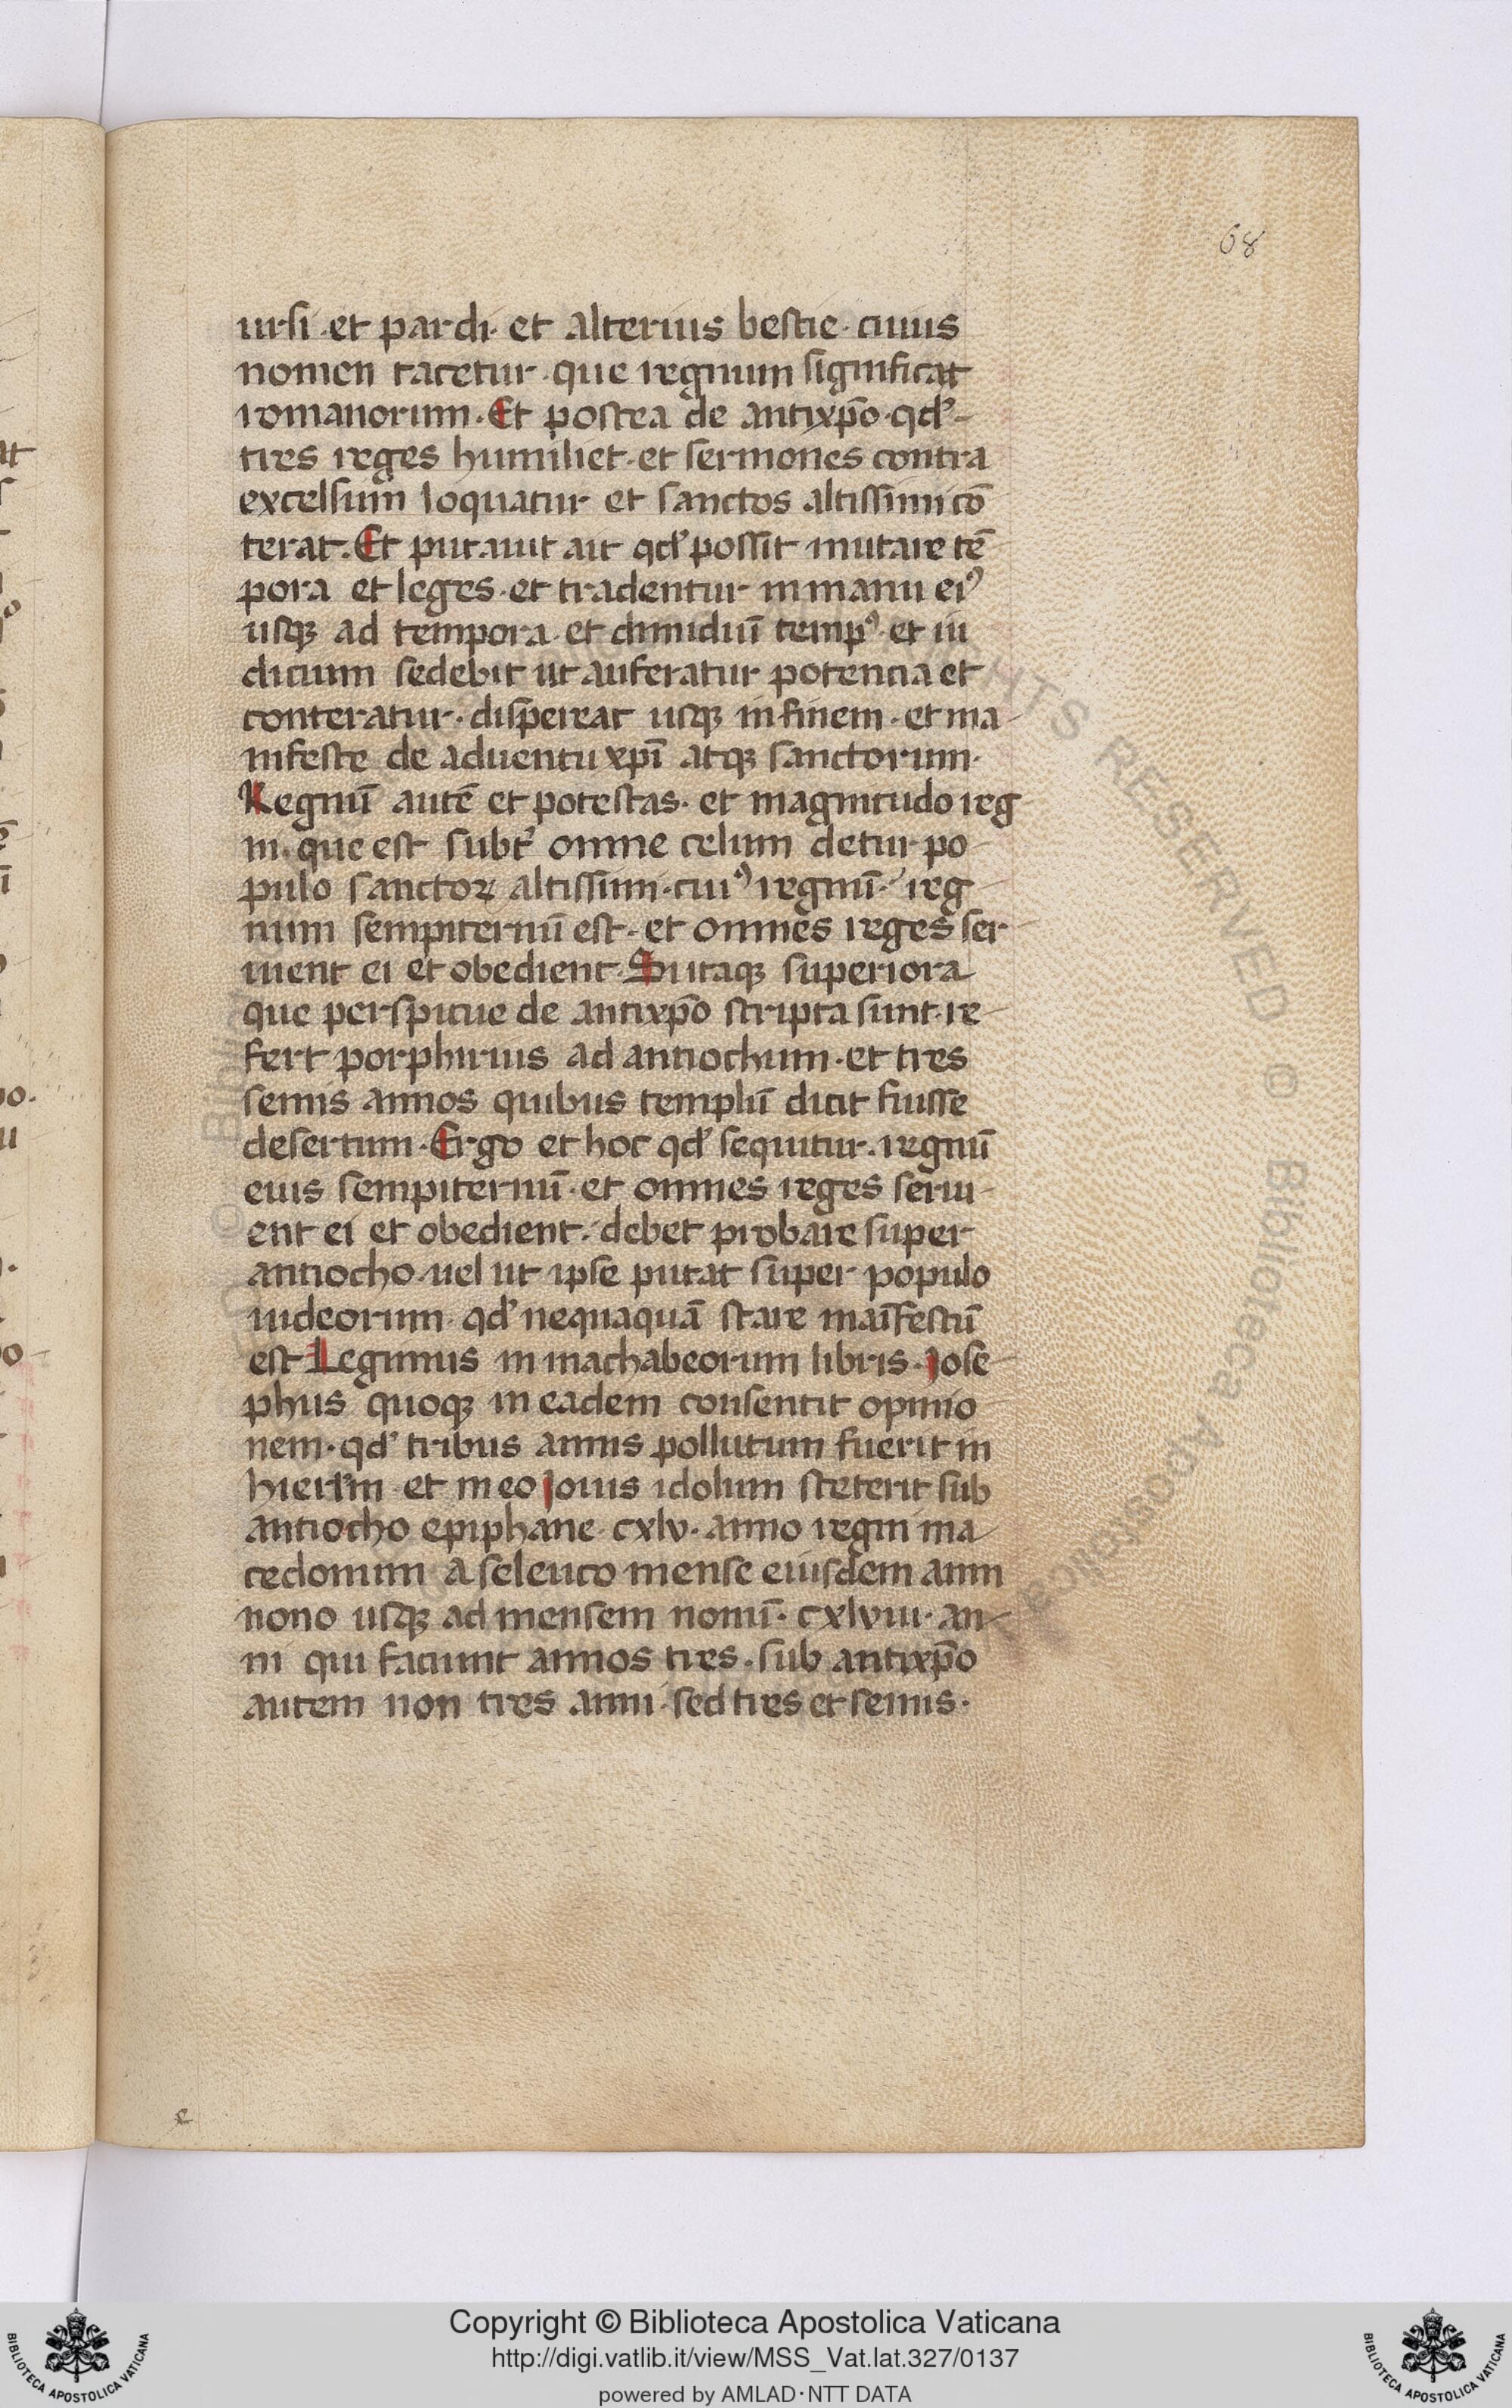 68
ursi · et pardi · et alterius bestie · cuius
nomen tacetur · que regnum significat
romanorum · Et postea de antixp̄o · qd̛
tres reges humiliet · et sermones contra
excelsum loquatur et sanctos altissimi cō
terat · Et putauit ait qd̛ possit mutare tē
pora et leges · et tradentur in manu eiꝰ
usqꝫ ad tempora · et dimidiū tempꝰ · et iu
dicium sedebit ut auferatur potencia et
conteratur · dispereat usqꝫ in finem · et ma
nifeste de aduentu xp̄i atqꝫ sanctorum ·
Regnū autē et potestas · et magnitudo reg
ni · que est subt̛ omne celum detur po
pulo sanctoꝝ altissimi · cuiꝰ regnū · reg
num sempiternū est · et omnes reges ser
uient ei et obedient · Siitaqꝫ superiora
que perspicue de antixp̄o scripta sunt · re
fert porphirius ad antiochum · et tres
semis annos quibus templū dicit fuisse
desertum · Ergo et hoc qd̛ sequitur · regnū
eius sempiternū · et omnes reges serui
ent ei et obedient · debet probare super
antiocho · uel ut ipse putat super populo
iudeorum · qd̛ nequaquā stare maīfestū
est Legimus in machabeorum libris · Jose
phus quoqꝫ in eadem consentit opinio
nem · qd̛ tribus annis pollutum fuerit in
hierl̄m et in eo Jouis idolum steterit sub
antiocho epiphane · cxlv · anno regni ma
cedonum a seleuco mense eiusdem anni
nono usqꝫ ad mensem nonū · cxlviii · an
ni qui faciunt annos tres · sub antixp̄o
autem non tres anni · sed tres et semis ·
e
Copyright © Biblioteca Apostolica Vaticana
http://digi.vatlib.it/view/MSS_Vat.lat.327/0137
powered by AMLAD·NTT DATA